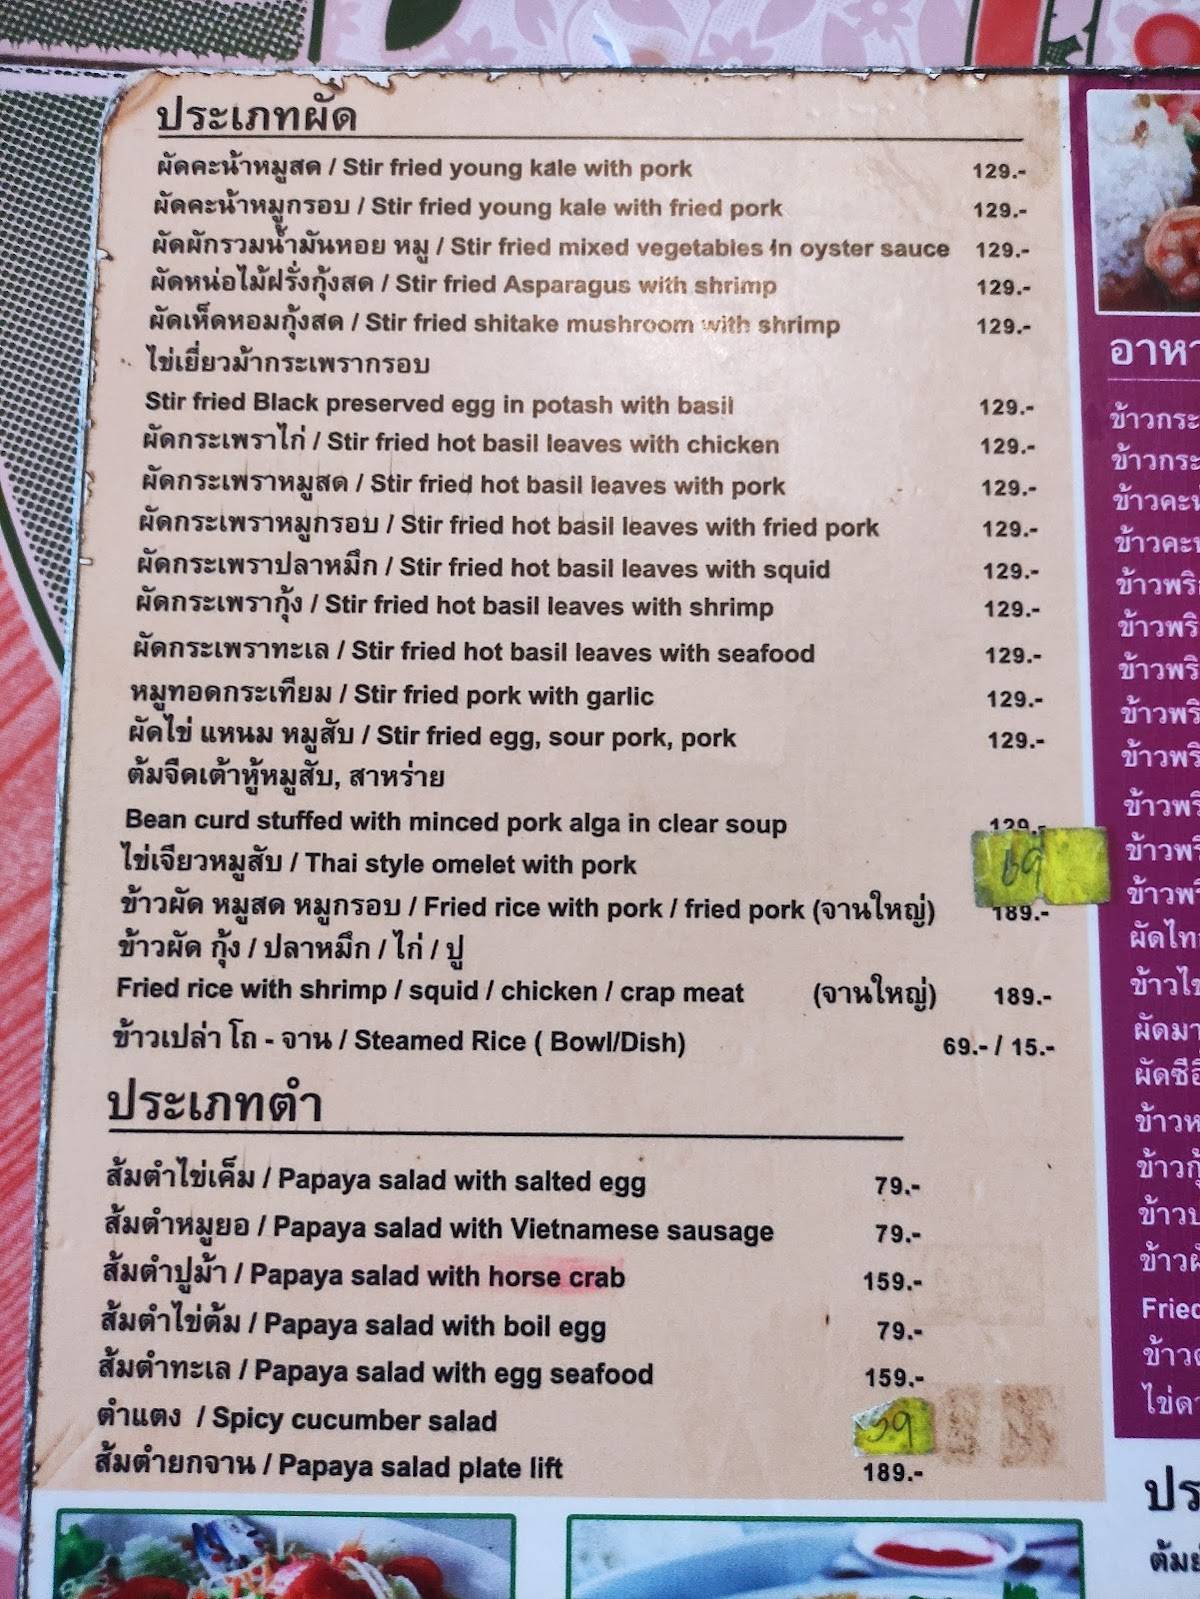 ประเภทผัด
ผัดคะน้าหมูสด / Stir fried young kale with pork 129.-
ผัดคะน้าหมูกรอบ / Stir fried young kale with fried pork 129.-
ผัดผักรวมน้ำมันหอย หมู / Stir fried mixed vegetables in oyster sauce 129.-
ผัดหน่อไม้ฝรั่งกุ้งสด / Stir fried Asparagus with shrimp 129.-
ผัดเห็ดหอมกุ้งสด / Stir fried shitake mushroom with shrimp 129.-
ไข่เยี่ยวม้ากระเพรากรอบ
Stir fried Black preserved egg in potash with basil 129.-
ผัดกระเพราไก่ / Stir fried hot basil leaves with chicken 129.-
ผัดกระเพราหมูสด / Stir fried hot basil leaves with pork 129.-
ผัดกระเพราหมูกรอบ / Stir fried hot basil leaves with fried pork 129.-
ผัดกระเพราปลาหมึก / Stir fried hot basil leaves with squid 129.-
ผัดกระเพรากุ้ง / Stir fried hot basil leaves with shrimp 129.-
ผัดกระเพราทะเล / Stir fried hot basil leaves with seafood 129.-
หมูทอดกระเทียม / Stir fried pork with garlic 129.-
ผัดไข่ แหนม หมูสับ / Stir fried egg, sour pork, pork 129.-
ต้มจืดเต้าหู้หมูสับ, สาหร่าย
Bean curd stuffed with minced pork alga in clear soup 129.-
ไข่เจียวหมูสับ / Thai style omelet with pork 69
ข้าวผัด หมูสด หมูกรอบ / Fried rice with pork / fried pork (จานใหญ่) 189.-
ข้าวผัด กุ้ง / ปลาหมึก / ไก่ / ปู
Fried rice with shrimp / squid / chicken / crap meat (จานใหญ่) 189.-
ข้าวเปล่า โถ - จาน / Steamed Rice ( Bowl/Dish) 69.- / 15.-
ประเภทตำ
ส้มตำไข่เค็ม / Papaya salad with salted egg 79.-
ส้มตำหมูยอ / Papaya salad with Vietnamese sausage 79.-
ส้มตำปูม้า / Papaya salad with horse crab 159.-
ส้มตำไข่ต้ม / Papaya salad with boil egg 79.-
ส้มตำทะเล / Papaya salad with egg seafood 159.-
ตำแตง / Spicy cucumber salad 59
ส้มตำยกจาน / Papaya salad plate lift 189.-